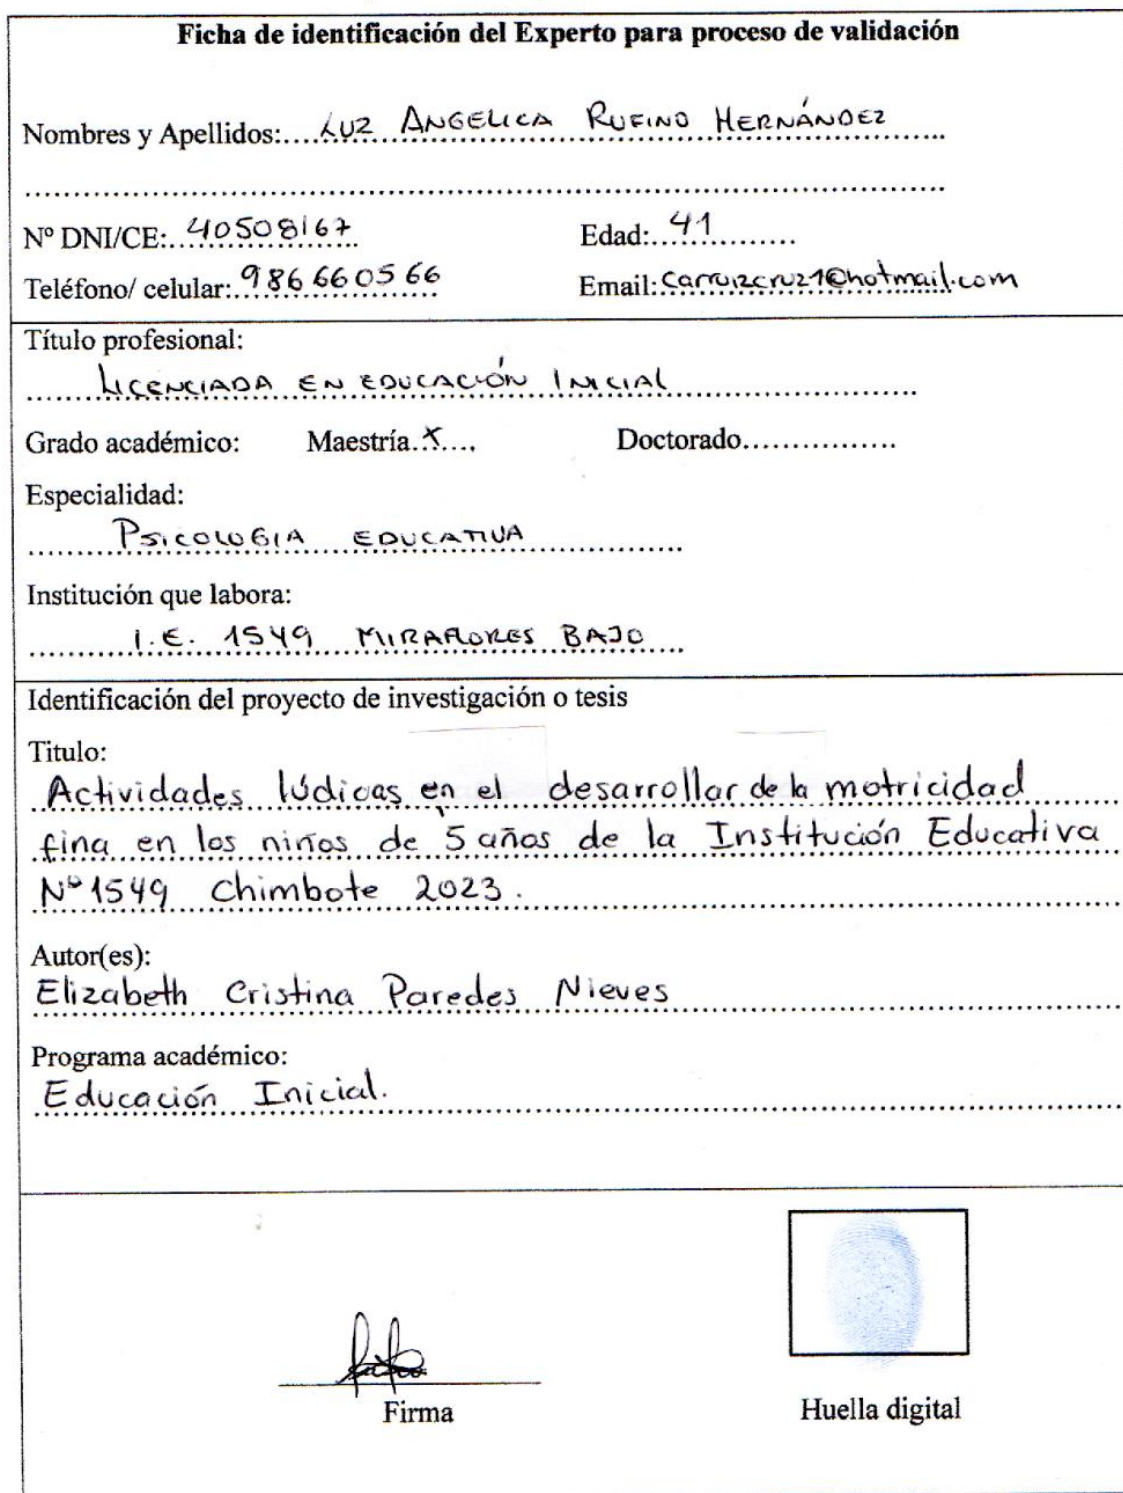 Ficha de identificación del Experto para proceso de validación
Nombres y Apellidos:.... LUZ ANGELICA RUFINO HERNÁNDEZ
Nº DNI/CE: 40508167 Edad: 41
Teléfono/ celular: 986660566 Email: carruizcruz1@hotmail.com
Título profesional:
LICENCIADA EN EDUCACIÓN INICIAL
Grado académico: Maestría..X.... Doctorado...............
Especialidad:
PSICOLOGIA EDUCATIVA
Institución que labora:
I.E. 1549 MIRAFLORES BAJO
Identificación del proyecto de investigación o tesis
Titulo:
Actividades lúdicas en el desarrollar de la motricidad
fina en los niños de 5 años de la Institución Educativa
Nº 1549 Chimbote 2023.
Autor(es):
Elizabeth Cristina Paredes Nieves
Programa académico:
Educación Inicial.
Firma Huella digital